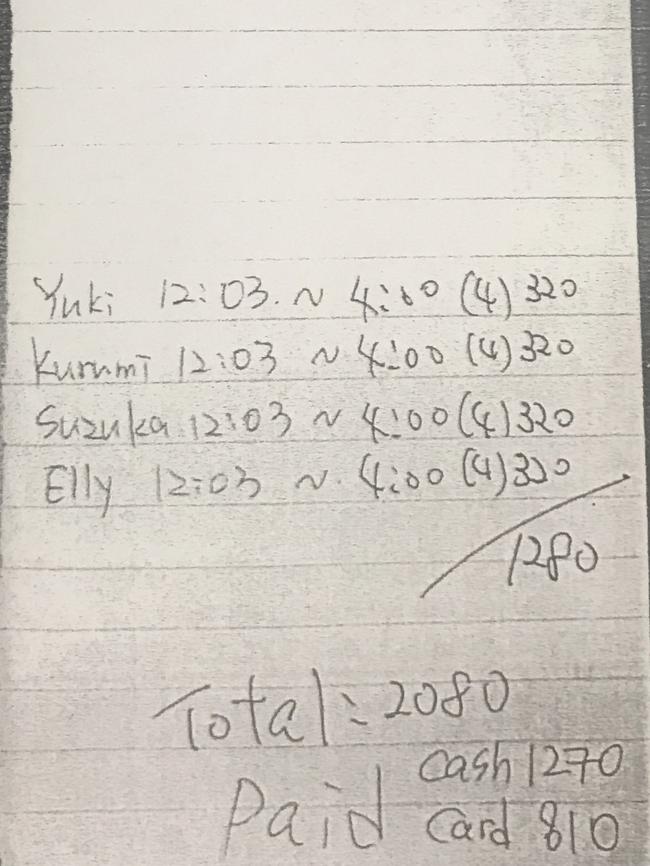 Yuki 12:03 ~ 4:00 (4) 320
Kurumi 12:03 ~ 4:00 (4) 320
Suzuka 12:03 ~ 4:00 (4) 320
Elly 12:03 ~ 4:00 (4) 320
1280
Total: 2080
Paid cash 1270
card 810